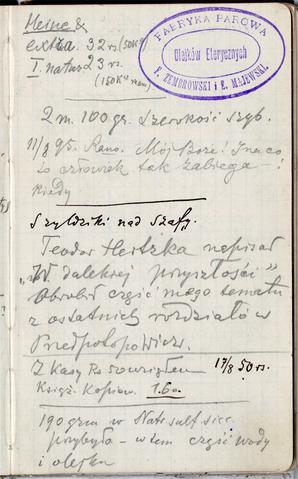 Heine &
extra. 32 rs. (50 K°)
I. natur 23 rs.
(150 K°
FABRYKA PAROWA
Olejków Eterycznych
F. ZEMBROWSKI i E. MAJEWSKI.
2 m. 100 gr. Szerokość szyb.
11/8 95. Rano. Mój Boże! I na co
to człowiek tak zabiega -!
Kiedy
Szyldziki nad Szafy.
Teodor Hertzka napisał
„W dalekiej przyszłości"
Obrobił część mego tematu
z ostatnich rozdziałów
Przedpotopowicz.
Z Kasy 17/8 50 rs.
Księż. Kopiow. 1.60
190 grm w Natr sulf sicc.
przybyło - w tem część wody
i olejku